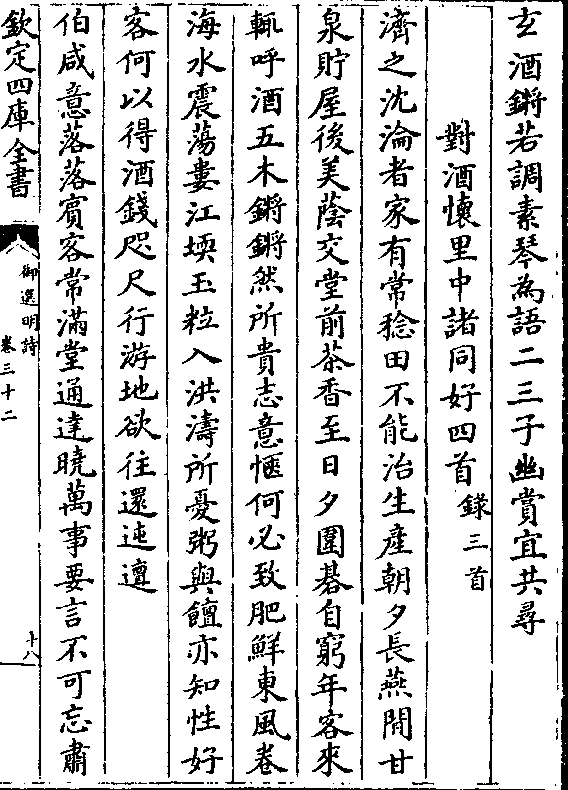 玄酒鏘若調素琴為語二三子幽賞宜共尋
對酒懷里中諸同好四首錄三首
濟之沈淪者家有常稔田不能治生產朝夕長燕閒甘
泉貯屋後美蔭交堂前茶香至日夕圍棊自窮年客來
輒呼酒五木鏘鏘然所貴志意愜何必致肥鮮東風卷
海水震蕩婁江堧玉粒入洪濤所憂粥與饘亦知性好
客何以得酒錢咫尺行游地欲往還迍邅
伯咸意落落賓客常滿堂通達曉萬事要言不可忘肅
欽定四庫全書
御選明詩
卷三十二
十八